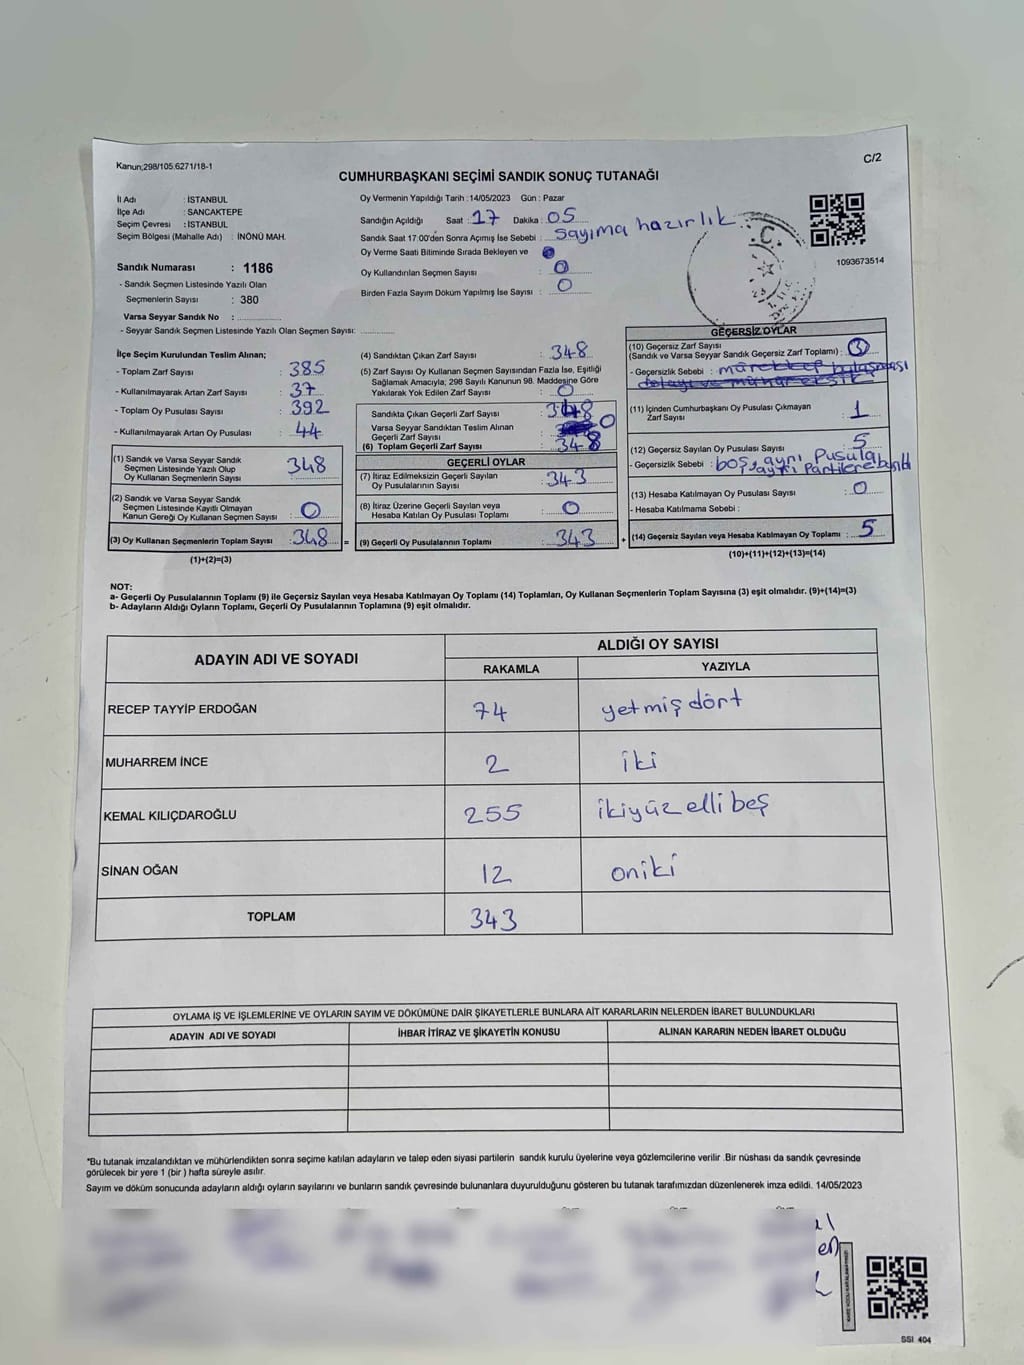 Kanun;298/105.6271/18-1
C/2
CUMHURBAŞKANI SEÇİMİ SANDIK SONUÇ TUTANAĞI
İl Adı : İSTANBUL
İlçe Adı : SANCAKTEPE
Seçim Çevresi : İSTANBUL
Seçim Bölgesi (Mahalle Adı) : İNÖNÜ MAH.
Sandık Numarası : 1186
- Sandık Seçmen Listesinde Yazılı Olan
Seçmenlerin Sayısı : 380
Varsa Seyyar Sandık No :
- Seyyar Sandık Seçmen Listesinde Yazılı Olan Seçmen Sayısı:
Oy Vermenin Yapıldığı Tarih : 14/05/2023 Gün : Pazar
Sandığın Açıldığı Saat : 17 Dakika : 05
Sandık Saat 17:00'den Sonra Açımış İse Sebebi : Sayıma hazırlık
Oy Verme Saati Bitiminde Sırada Bekleyen ve
Oy Kullandırılan Seçmen Sayısı : 0
Birden Fazla Sayım Döküm Yapılmış İse Sayısı : 0
1093673514
İlçe Seçim Kurulundan Teslim Alınan;
- Toplam Zarf Sayısı : 385
- Kullanılmayarak Artan Zarf Sayısı : 37
- Toplam Oy Pusulası Sayısı : 392
- Kullanılmayarak Artan Oy Pusulası : 44
(1) Sandık ve Varsa Seyyar Sandık
Seçmen Listesinde Yazılı Olup
Oy Kullanan Seçmenlerin Sayısı : 348
(2) Sandık ve Varsa Seyyar Sandık
Seçmen Listesinde Kayıtlı Olmayan
Kanun Gereği Oy Kullanan Seçmen Sayısı : 0
(3) Oy Kullanan Seçmenlerin Toplam Sayısı : 348 =
(1)+(2)=(3)
(4) Sandıktan Çıkan Zarf Sayısı : 348
(5) Zarf Sayısı Oy Kullanan Seçmen Sayısından Fazla İse, Eşitliği
Sağlamak Amacıyla; 298 Sayılı Kanunun 98. Maddesine Göre
Yakılarak Yok Edilen Zarf Sayısı : 0
Sandıkta Çıkan Geçerli Zarf Sayısı : 348
Varsa Seyyar Sandıktan Teslim Alınan
Geçerli Zarf Sayısı : 0
(6) Toplam Geçerli Zarf Sayısı : 348
GEÇERLİ OYLAR
(7) İtiraz Edilmeksizin Geçerli Sayılan
Oy Pusulalarının Sayısı : 343
(8) İtiraz Üzerine Geçerli Sayılan veya
Hesaba Katılan Oy Pusulası Toplamı : 0
(9) Geçerli Oy Pusulalarının Toplamı : 343 +
GEÇERSİZ OYLAR
(10) Geçersiz Zarf Sayısı
(Sandık ve Varsa Seyyar Sandık Geçersiz Zarf Toplamı) :
- Geçersizlik Sebebi : mürekkep bulaşması
dolayı ve
(11) İçinden Cumhurbaşkanı Oy Pusulası Çıkmayan
Zarf Sayısı : 1
(12) Geçersiz Sayılan Oy Pusulası Sayısı : 5
- Geçersizlik Sebebi : boş, aynı Pusula
Partilere
(13) Hesaba Katılmayan Oy Pusulası Sayısı : 0
- Hesaba Katılmama Sebebi :
(14) Geçersiz Sayılan veya Hesaba Katılmayan Oy Toplamı : 5
(10)+(11)+(12)+(13)=(14)
NOT:
a- Geçerli Oy Pusulalarının Toplamı (9) ile Geçersiz Sayılan veya Hesaba Katılmayan Oy Toplamı (14) Toplamları, Oy Kullanan Seçmenlerin Toplam Sayısına (3) eşit olmalıdır. (9)+(14)=(3)
b- Adayların Aldığı Oyların Toplamı, Geçerli Oy Pusulalarının Toplamına (9) eşit olmalıdır.
ADAYIN ADI VE SOYADI
ALDIĞI OY SAYISI
RAKAMLA YAZIYLA
RECEP TAYYİP ERDOĞAN 74 yetmiş dört
MUHARREM İNCE 2 iki
KEMAL KILIÇDAROĞLU 255 ikiyüz elli beş
SİNAN OĞAN 12 oniki
TOPLAM 343
OYLAMA İŞ VE İŞLEMLERİNE VE OYLARIN SAYIM VE DÖKÜMÜNE DAİR ŞİKAYETLERLE BUNLARA AİT KARARLARIN NELERDEN İBARET BULUNDUKLARI
ADAYIN ADI VE SOYADI İHBAR İTİRAZ VE ŞİKAYETİN KONUSU ALINAN KARARIN NEDEN İBARET OLDUĞU
*Bu tutanak imzalandıktan ve mühürlendikten sonra seçime katılan adayların ve talep eden siyasi partilerin sandık kurulu üyelerine veya gözlemcilerine verilir .Bir nüshası da sandık çevresinde
görülecek bir yere 1 (bir ) hafta süreyle asılır.
Sayım ve döküm sonucunda adayların aldığı oyların sayılarını ve bunların sandık çevresinde bulunanlara duyurulduğunu gösteren bu tutanak tarafımızdan düzenlenerek imza edildi. 14/05/2023
SSI 404